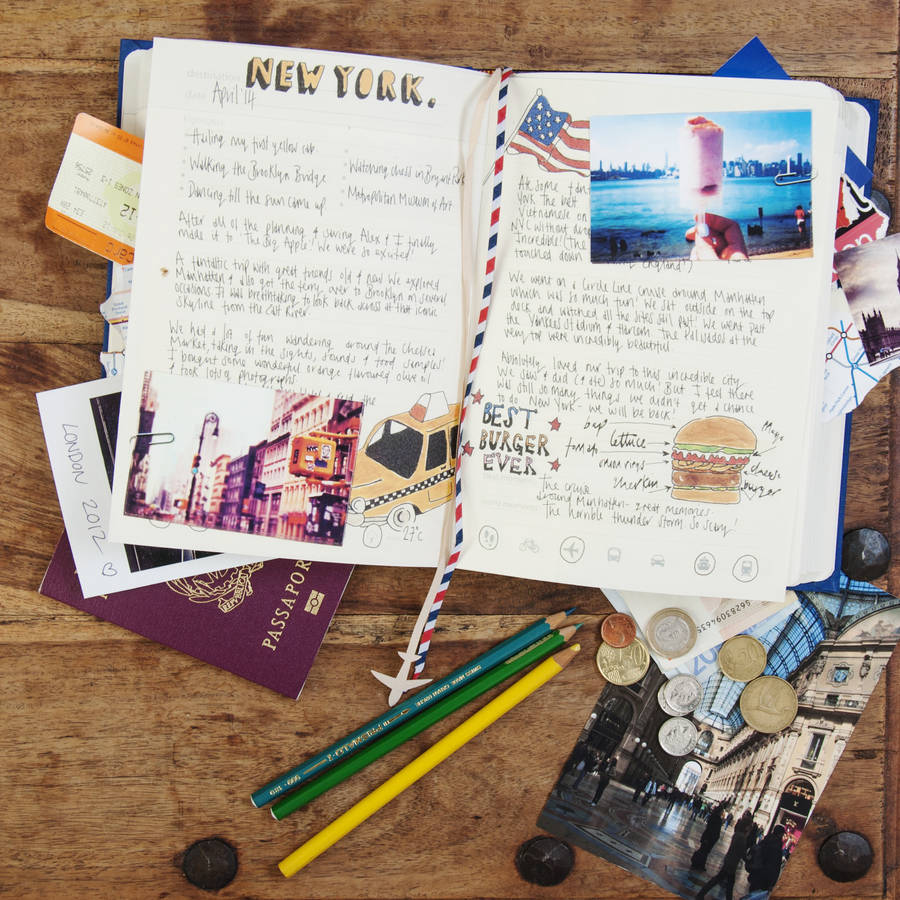 destination NEW YORK.
date April '14
Hailing my first yellow cab
Walking the Brooklyn Bridge
Dancing till the sun came up
Watching chess in Bryant
Metropolitan Museum of Art
After all of the planning & saving Alex & I finally
made it to 'The Big Apple'! We were so excited!
A fantastic trip with great friends old & new. We explored
Manhattan & also got the ferry over to Brooklyn on several
occasions. It was breathtaking to look back across at that iconic
skyline from the East River.
We had a lot of fun wandering around the Chelsea
Market, taking in the sights, sounds & food samples!
I bought some wonderful orange flavoured olive oil
& took lots of photographs
the
27°c
York the best
Vietnamese on
NYC without
Incredible! (The
touched down England")
We went on a Circle Line cruise around Manhattan
which was so much fun! We sat outside on the top
deck and watched all the sites sail past! We went past
the Yankees Stadium & Harlem. The Palisades at the
very top were incredibly beautiful.
Absolutely loved our trip to this incredible city.
We saw & did (& ate) so much! But I feel there
was still so many things we didn't get a chance
to do. New York - we will be back!
BEST
BURGER
EVER
bap
lettuce
tomato
onion rings
gherkin
Mayo
cheese
burger
The cruise
around Manhattan - great memories.
The horrible thunder storm so scary!
LONDON 2012
PASSAPORTO